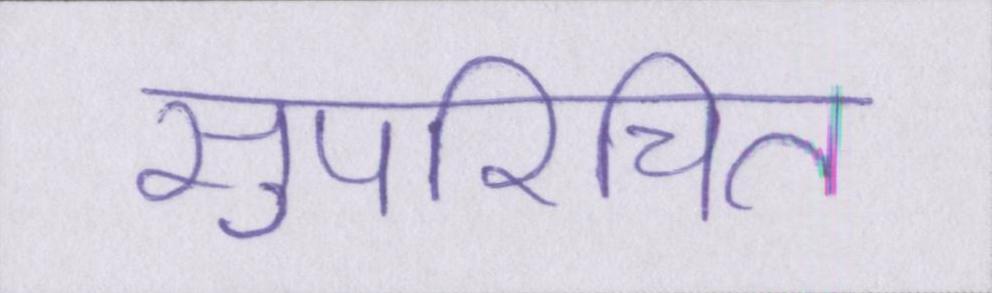 सुपरिचित